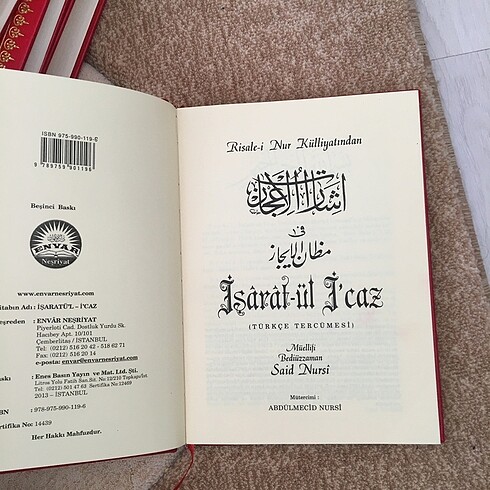 ISBN 975-990-119-6
9 789759 901196
Beşinci Baskı
ENVAR
Neşriyat
www.envarnesriyat.com
Kitabın Adı : İŞARATÜ'L – İ'CAZ
Neşreden : ENVÂR NEŞRİYAT
Piyerloti Cad. Dostluk Yurdu Sk.
Hacıbey Apt. 10/101
Çemberlitaş / İSTANBUL
Tel: (0212) 516 20 42 - 518 62 71
Fax: (0212) 516 20 14
e-posta: envar@envarnesriyat.com
Baskı : Enes Basın Yayın ve Mat. Ltd. Şti.
Litros Yolu Fatih San.Sit. No:12/210 Topkapı/İst.
Tel: (0212) 501 47 63 Sertifika No: 12469
2013 – İSTANBUL
ISBN : 978-975-990-119-6
Sertifika No: 14439
Her Hakkı Mahfuzdur.
Risale-i Nur Külliyatından
اشارات الاعجاز
فى
مظان الايجاز
İşârât-ül İ'caz
(TÜRKÇE TERCÜMESİ)
Müellifi
Bediüzzaman
Said Nursî
Mütercimi :
ABDÜLMECİD NURSÎ